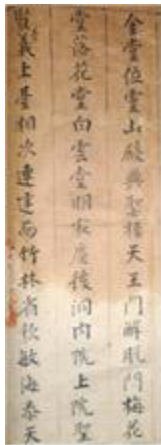 金堂位靈山殿興聖樓天王門解脫門梅花
堂落花堂白雲堂明寂庵後洞內院上院聖
義上臺相次連建而竹林省欣敏海泰天